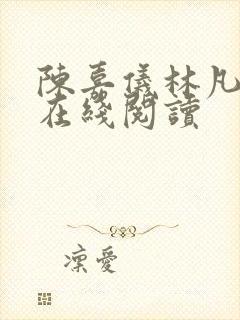 陳嘉儀林凡
在綫閱讀
凜愛